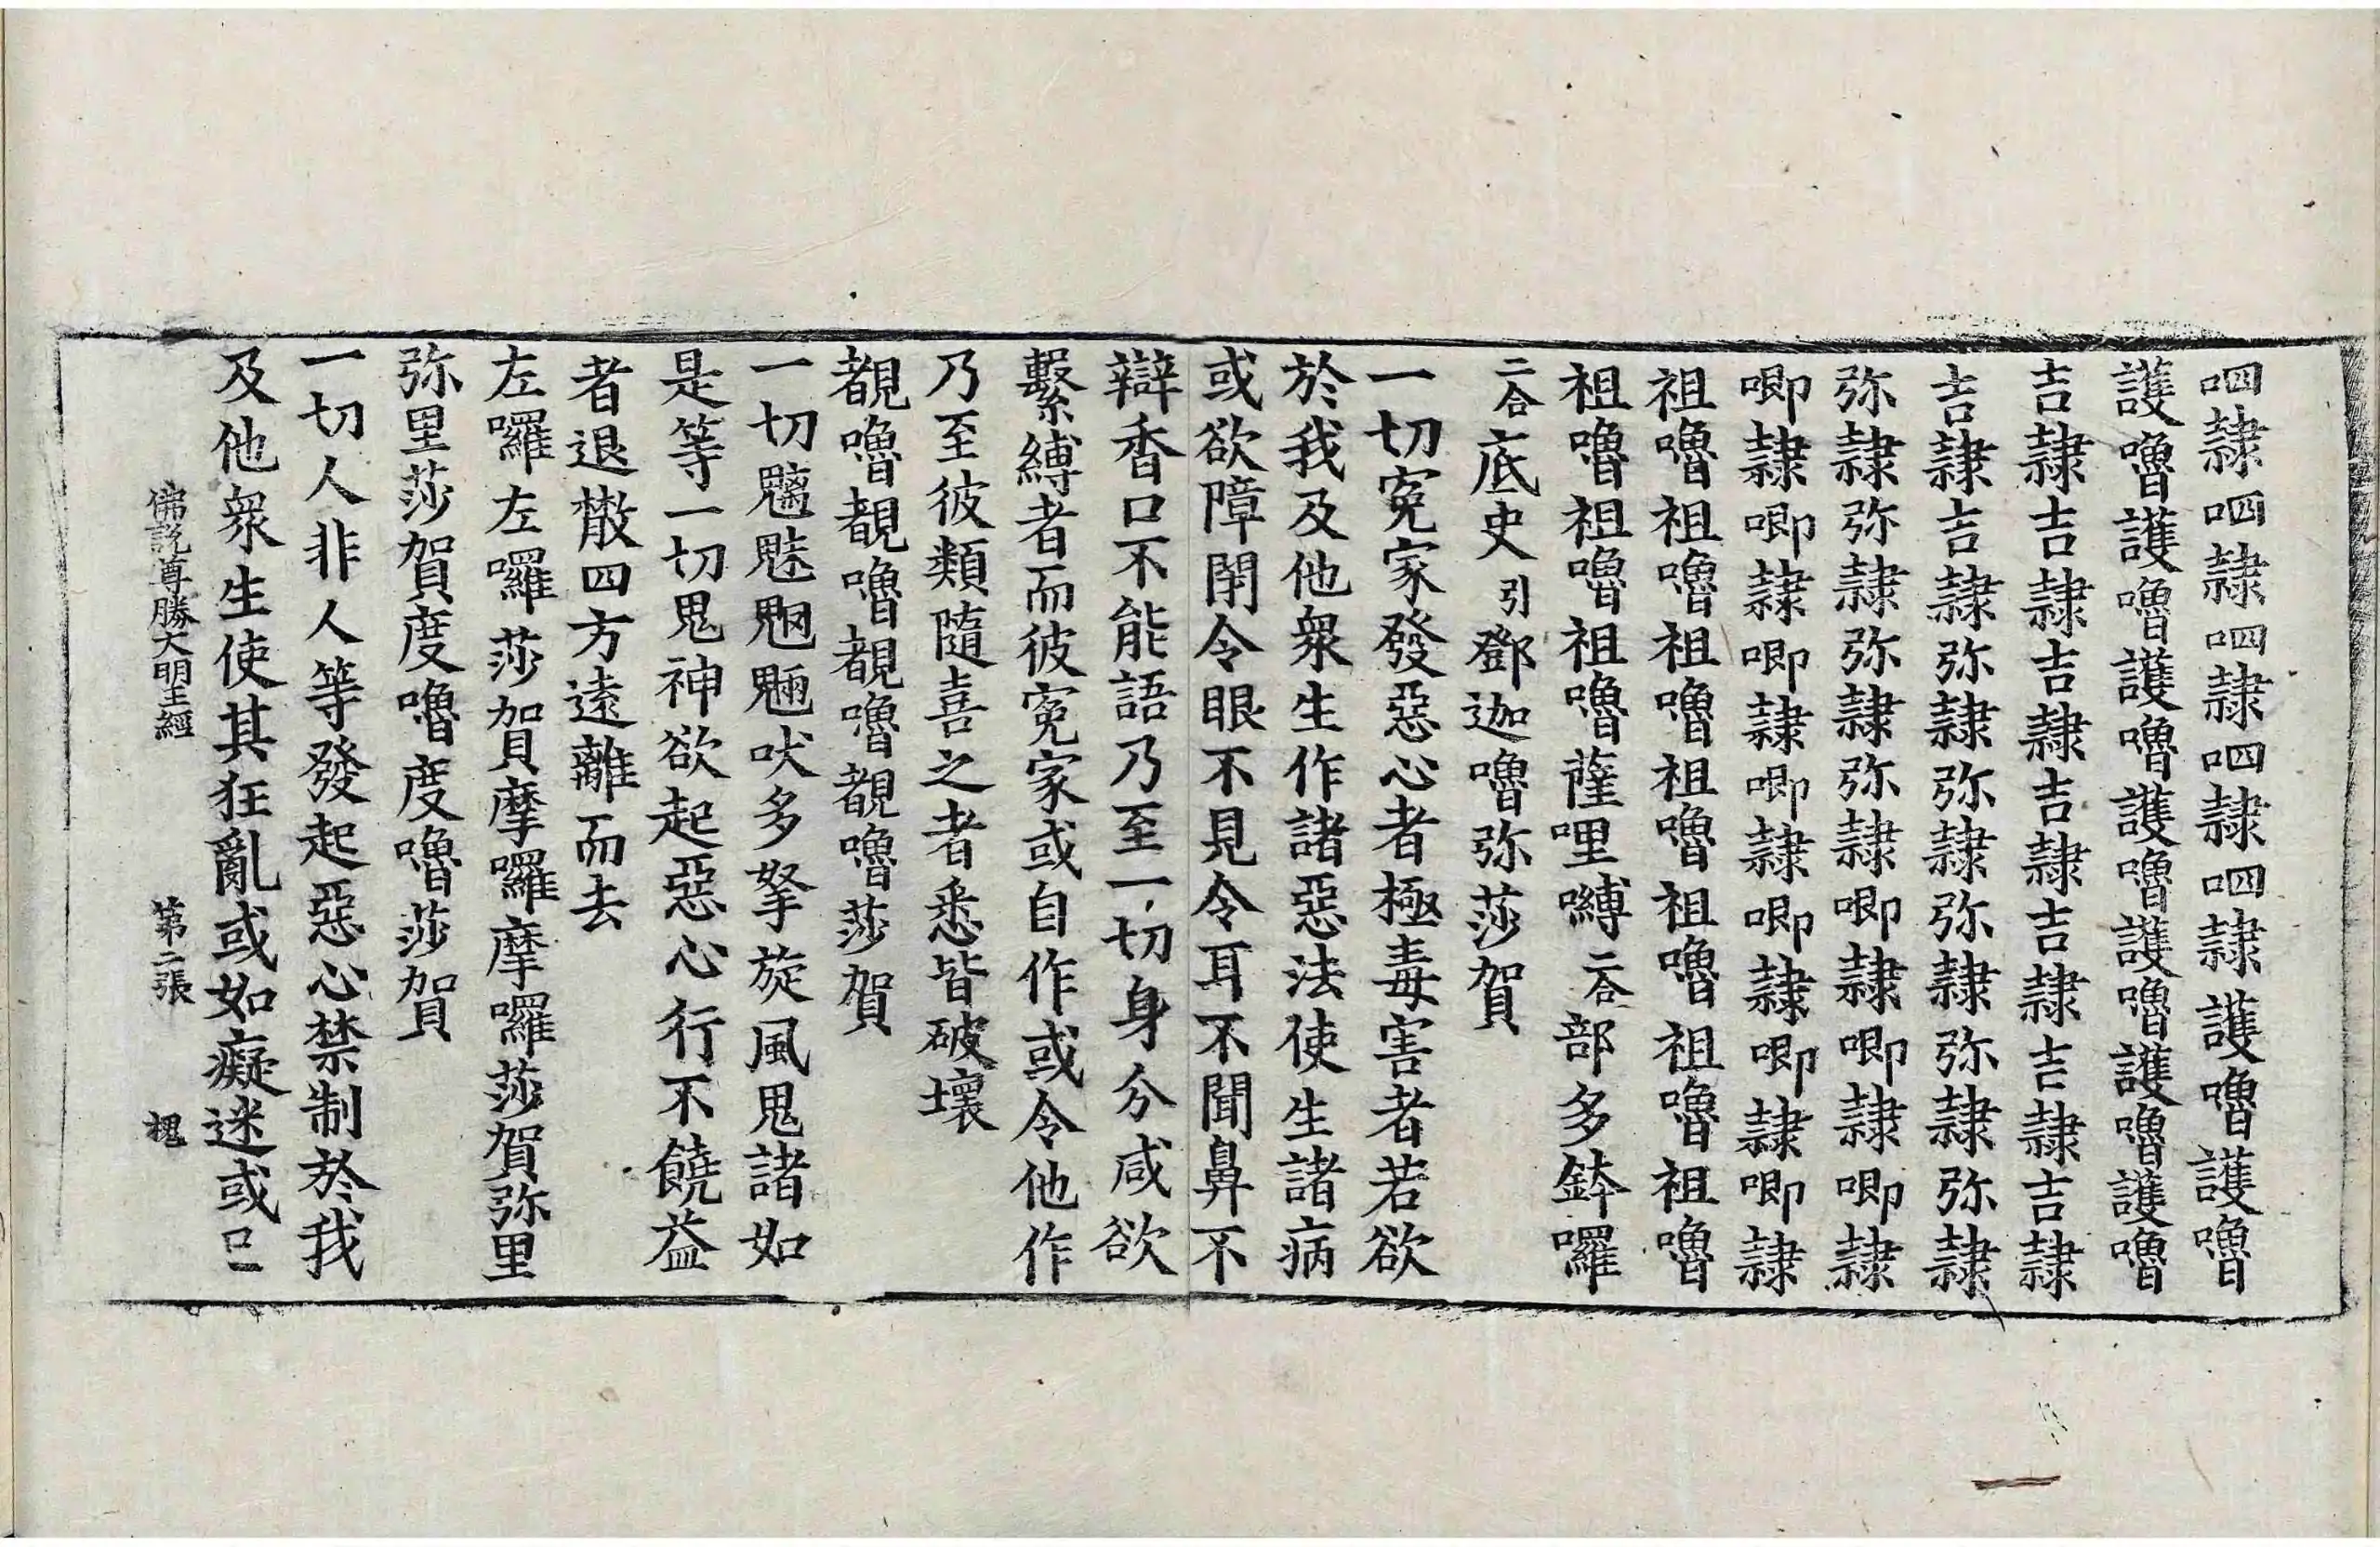 呬隷呬隷呬隷呬隷呬隷護嚕護嚕
護嚕護嚕護嚕護嚕護嚕護嚕護嚕
吉隷吉隷吉隷吉隷吉隷吉隷吉隷
吉隷吉隷弥隷弥隷弥隷弥隷弥隷
弥隷弥隷弥隷弥隷唧隷唧隷唧隷
唧隷唧隷唧隷唧隷唧隷唧隷唧隷
祖嚕祖嚕祖嚕祖嚕祖嚕祖嚕祖嚕
祖嚕祖嚕祖嚕薩哩嚩二合部多鉢囉
二合底史引鄧迦嚕弥莎賀
一切寃家發惡心者極毒害者若欲
於我及他衆生作諸惡法使生諸病
或欲障閇令眼不見令耳不聞鼻不
辯香口不能語乃至一切身分咸欲
繫縛者而彼寃家或自作或令他作
乃至彼類隨喜之者悉皆破壞
覩嚕覩嚕覩嚕覩嚕莎賀
一切魑魅魍魎吠多拏旋風鬼諸如
是等一切鬼神欲起惡心行不饒益
者退散四方遠離而去
左囉左囉莎賀摩囉摩囉莎賀弥里
弥里莎賀度嚕度嚕莎賀
一切人非人等發起惡心禁制於我
及他衆生使其狂亂或如癡迷或已
佛說尊勝大明王經 第二張 槐